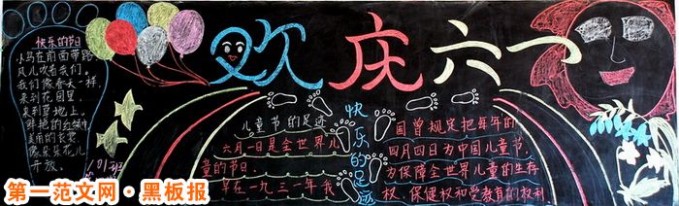 欢庆六一
快乐的节日
小鸟在前面带路
风儿吹着我们,
我们像春天一样,
来到花园里,
来到草地上,
鲜艳的红领巾
美丽的衣裳,
像朵朵花儿
开放。
快乐的足迹
儿童节的足迹
六月一日是全世界儿
童的节日。
早在一九三一年我
国曾规定把每年的
四月四日为中国儿童节,
为保障全世界儿童的生存
权、保健权和受教育的权利
第一范文网·黑板报